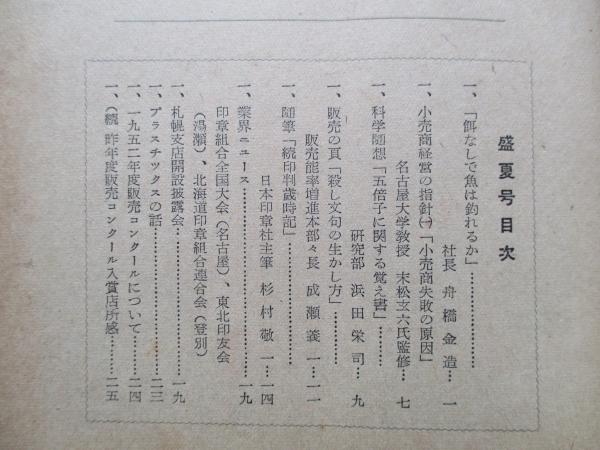 盛夏号目次
一、「餌なしで魚は釣れるか」…………
社長 舟橋金造… 一
一、小売商経営の指針㈠「小売商失敗の原因」
名古屋大学教授 末松玄六氏監修… 七
一、科学随想「五倍子に関する覚え書」…………
研究部 浜田栄司… 九
一、販売の頁「殺し文句の生かし方」…………
販売能率増進本部々長 成瀬義一…一一
一、随筆「続印判歳時記」…………
日本印章社主筆 杉村敬一…一四
一、業界ニュース…………一九
印章組合全国大会(名古屋)、東北印友会
(湯瀬)、北海道印章組合連合会(登別)
一、札幌支店開設披露会…………一九
一、プラスチックスの話…………二三
一、一九五二年度販売コンクールについて…………二四
一、(続 昨年度販売コンクール入賞店所感…………二五